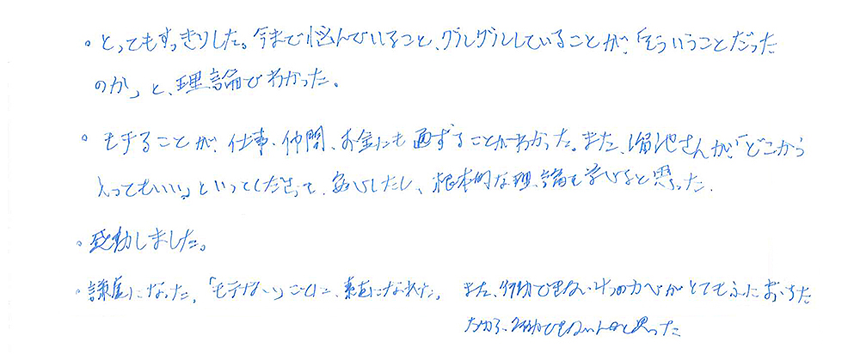 。とってもすっきりした。今まで悩んでいること、グルグルしていることが、「そういうことだった
のか」と、理論でわかった。
。モテることが、仕事、仲間、お金にも通ずることがわかった。また、溜池さんが、「どこから
入ってもいい」といってくださって、安心したし、根本的な理論を学びたいと思った。
。感動しました。
。謙虚になった。「モテない」ことに、素直になれた。 また、行動できない4つのカベがとてもふにおちた
だから、行動できないんだと思った